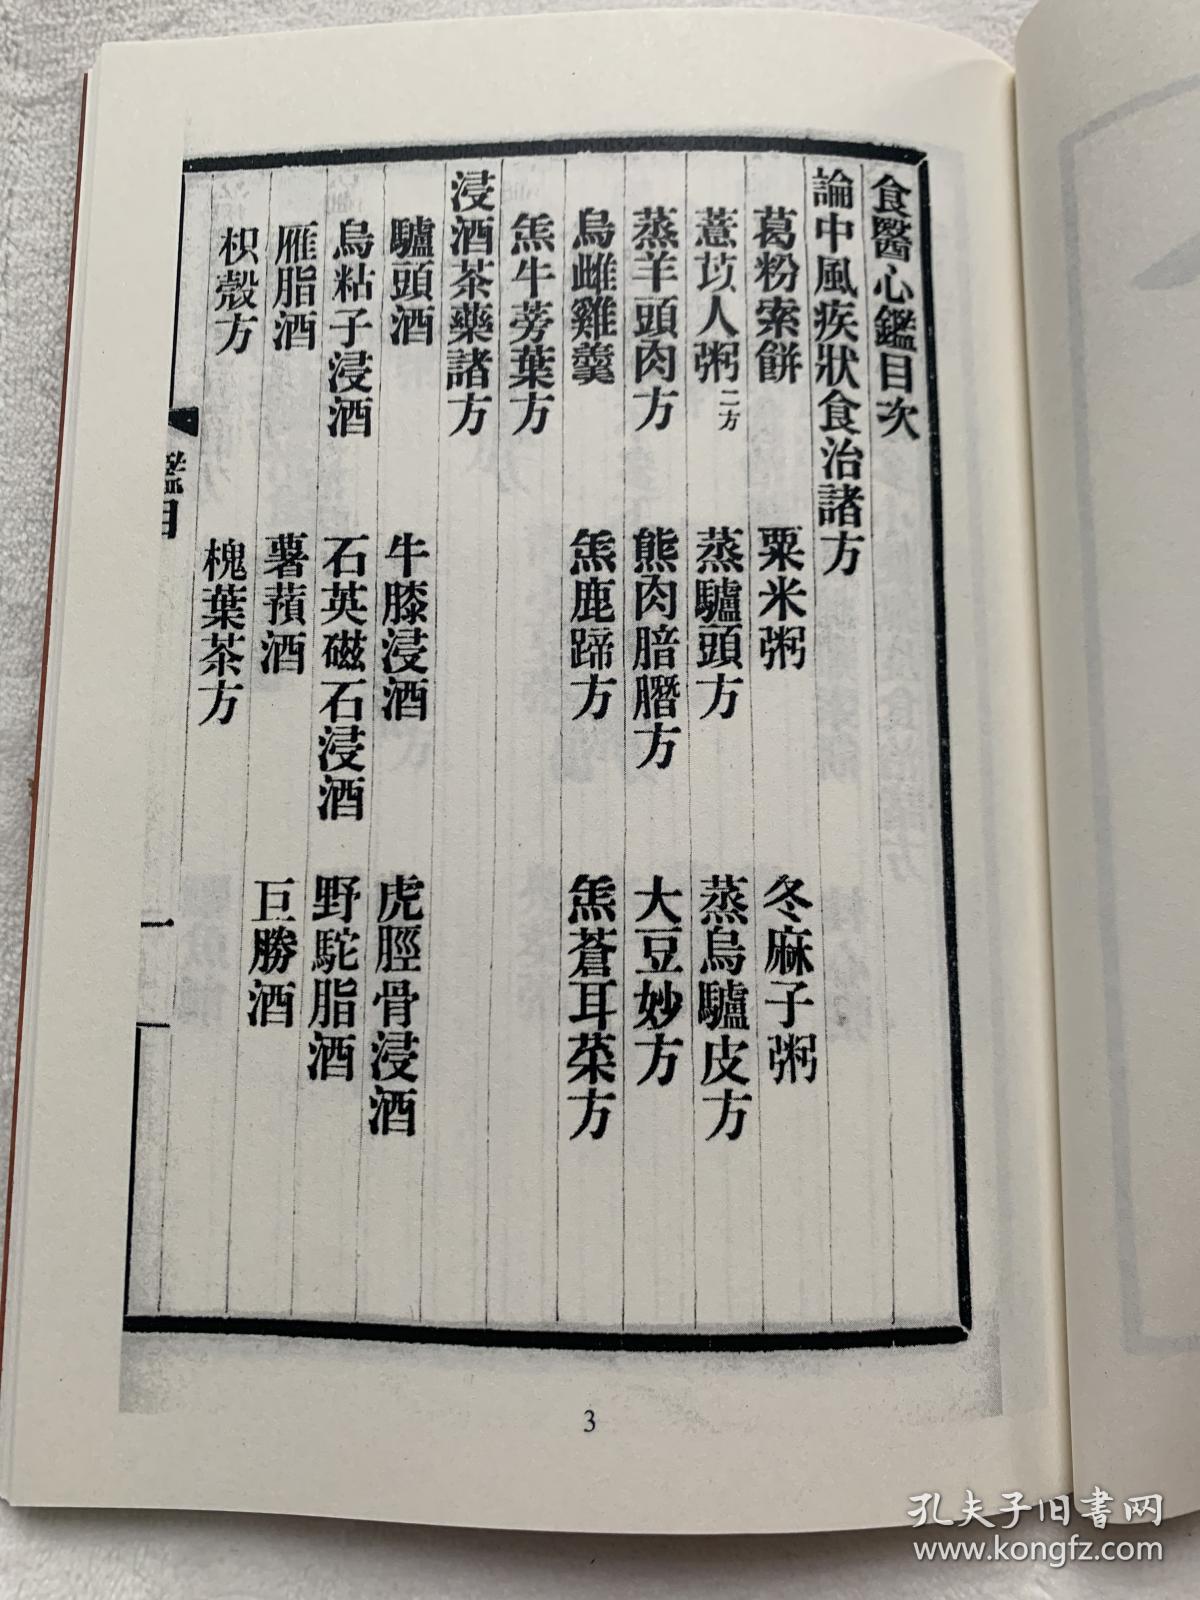 食醫心鑑目次
論中風疾狀食治諸方
葛粉索餅　粟米粥　冬麻子粥
薏苡人粥二方　蒸驢頭方　蒸烏驢皮方
蒸羊頭肉方　熊肉腤臢方　大豆妙方
烏雌雞羹　缹鹿蹄方　缹蒼耳菜方
缹牛蒡葉方
浸酒茶藥諸方
驢頭酒　牛膝浸酒　虎脛骨浸酒
烏粘子浸酒　石英磁石浸酒　野駝脂酒
雁脂酒　薯蕷酒　巨勝酒
枳殼方　槐葉茶方
鑑目　一
3
孔夫子旧書网
www.kongfz.com